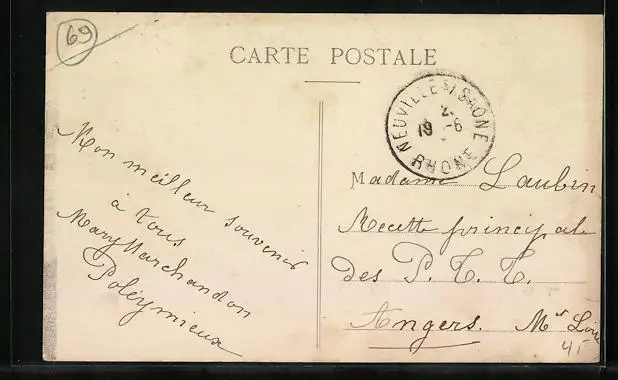 69
CARTE POSTALE
NEUVILLE S/ SAÔNE
2
19 -6
RHONE
Mon meilleur souvenir
à tous
Mary Marchandon
Poleymieux
Madame Laubin
Recette principale
des P. T. T.
Angers. M